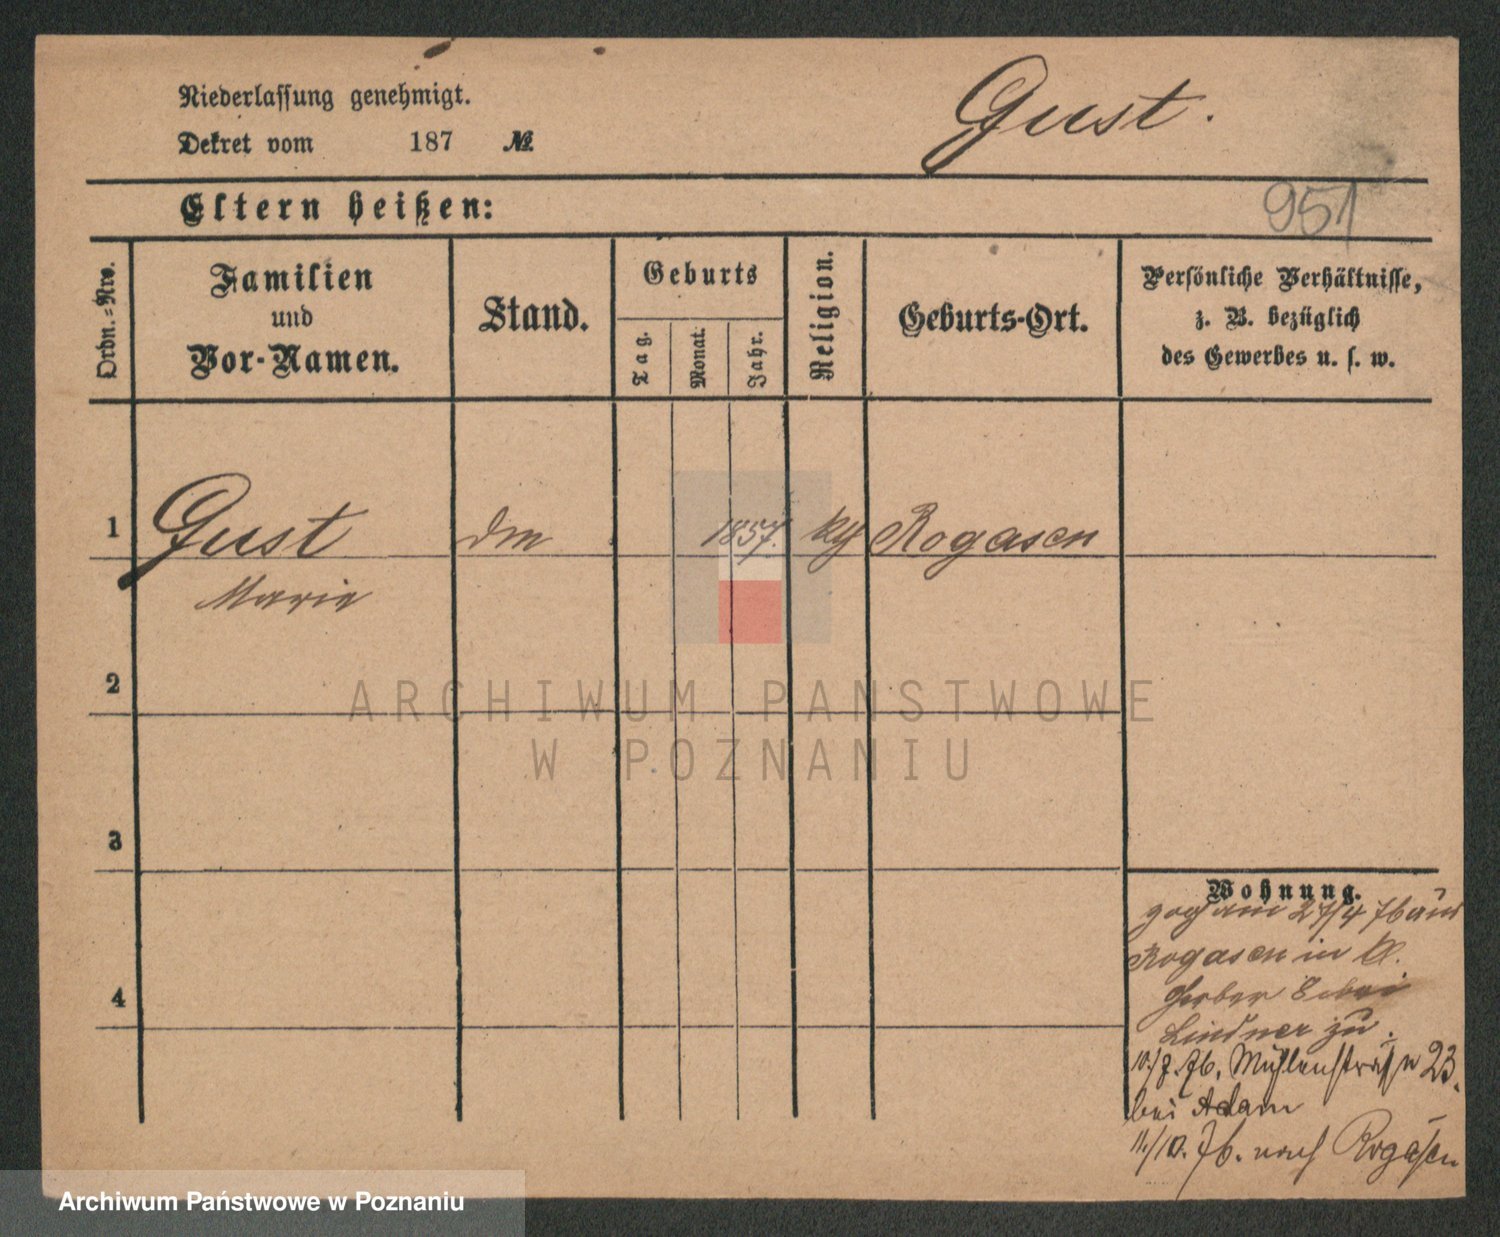 Niederlassung genehmigt.
Dekret vom 187 №
Gust.
Eltern heißen:
951
Ordn.-Nro.
Familien
und
Vor-Namen.
Stand.
Geburts
Tag.
Monat.
Jahr.
Religion.
Geburts-Ort.
Persönliche Verhältnisse,
z. B. bezüglich
des Gewerbes u. s. w.
1 Gust 1857. Rogasen
Marie
2
3
4
ARCHIWUM PANSTWOWE
W POZNANIU
Wohnung.
am 27/4 76 aus
Rogasen in
Gerber 8 bei
Lindner zu.
10./7. 76. Mühlenstraße 23.
bei Adam
11./10. 76. nach Rogasen
Archiwum Państwowe w Poznaniu